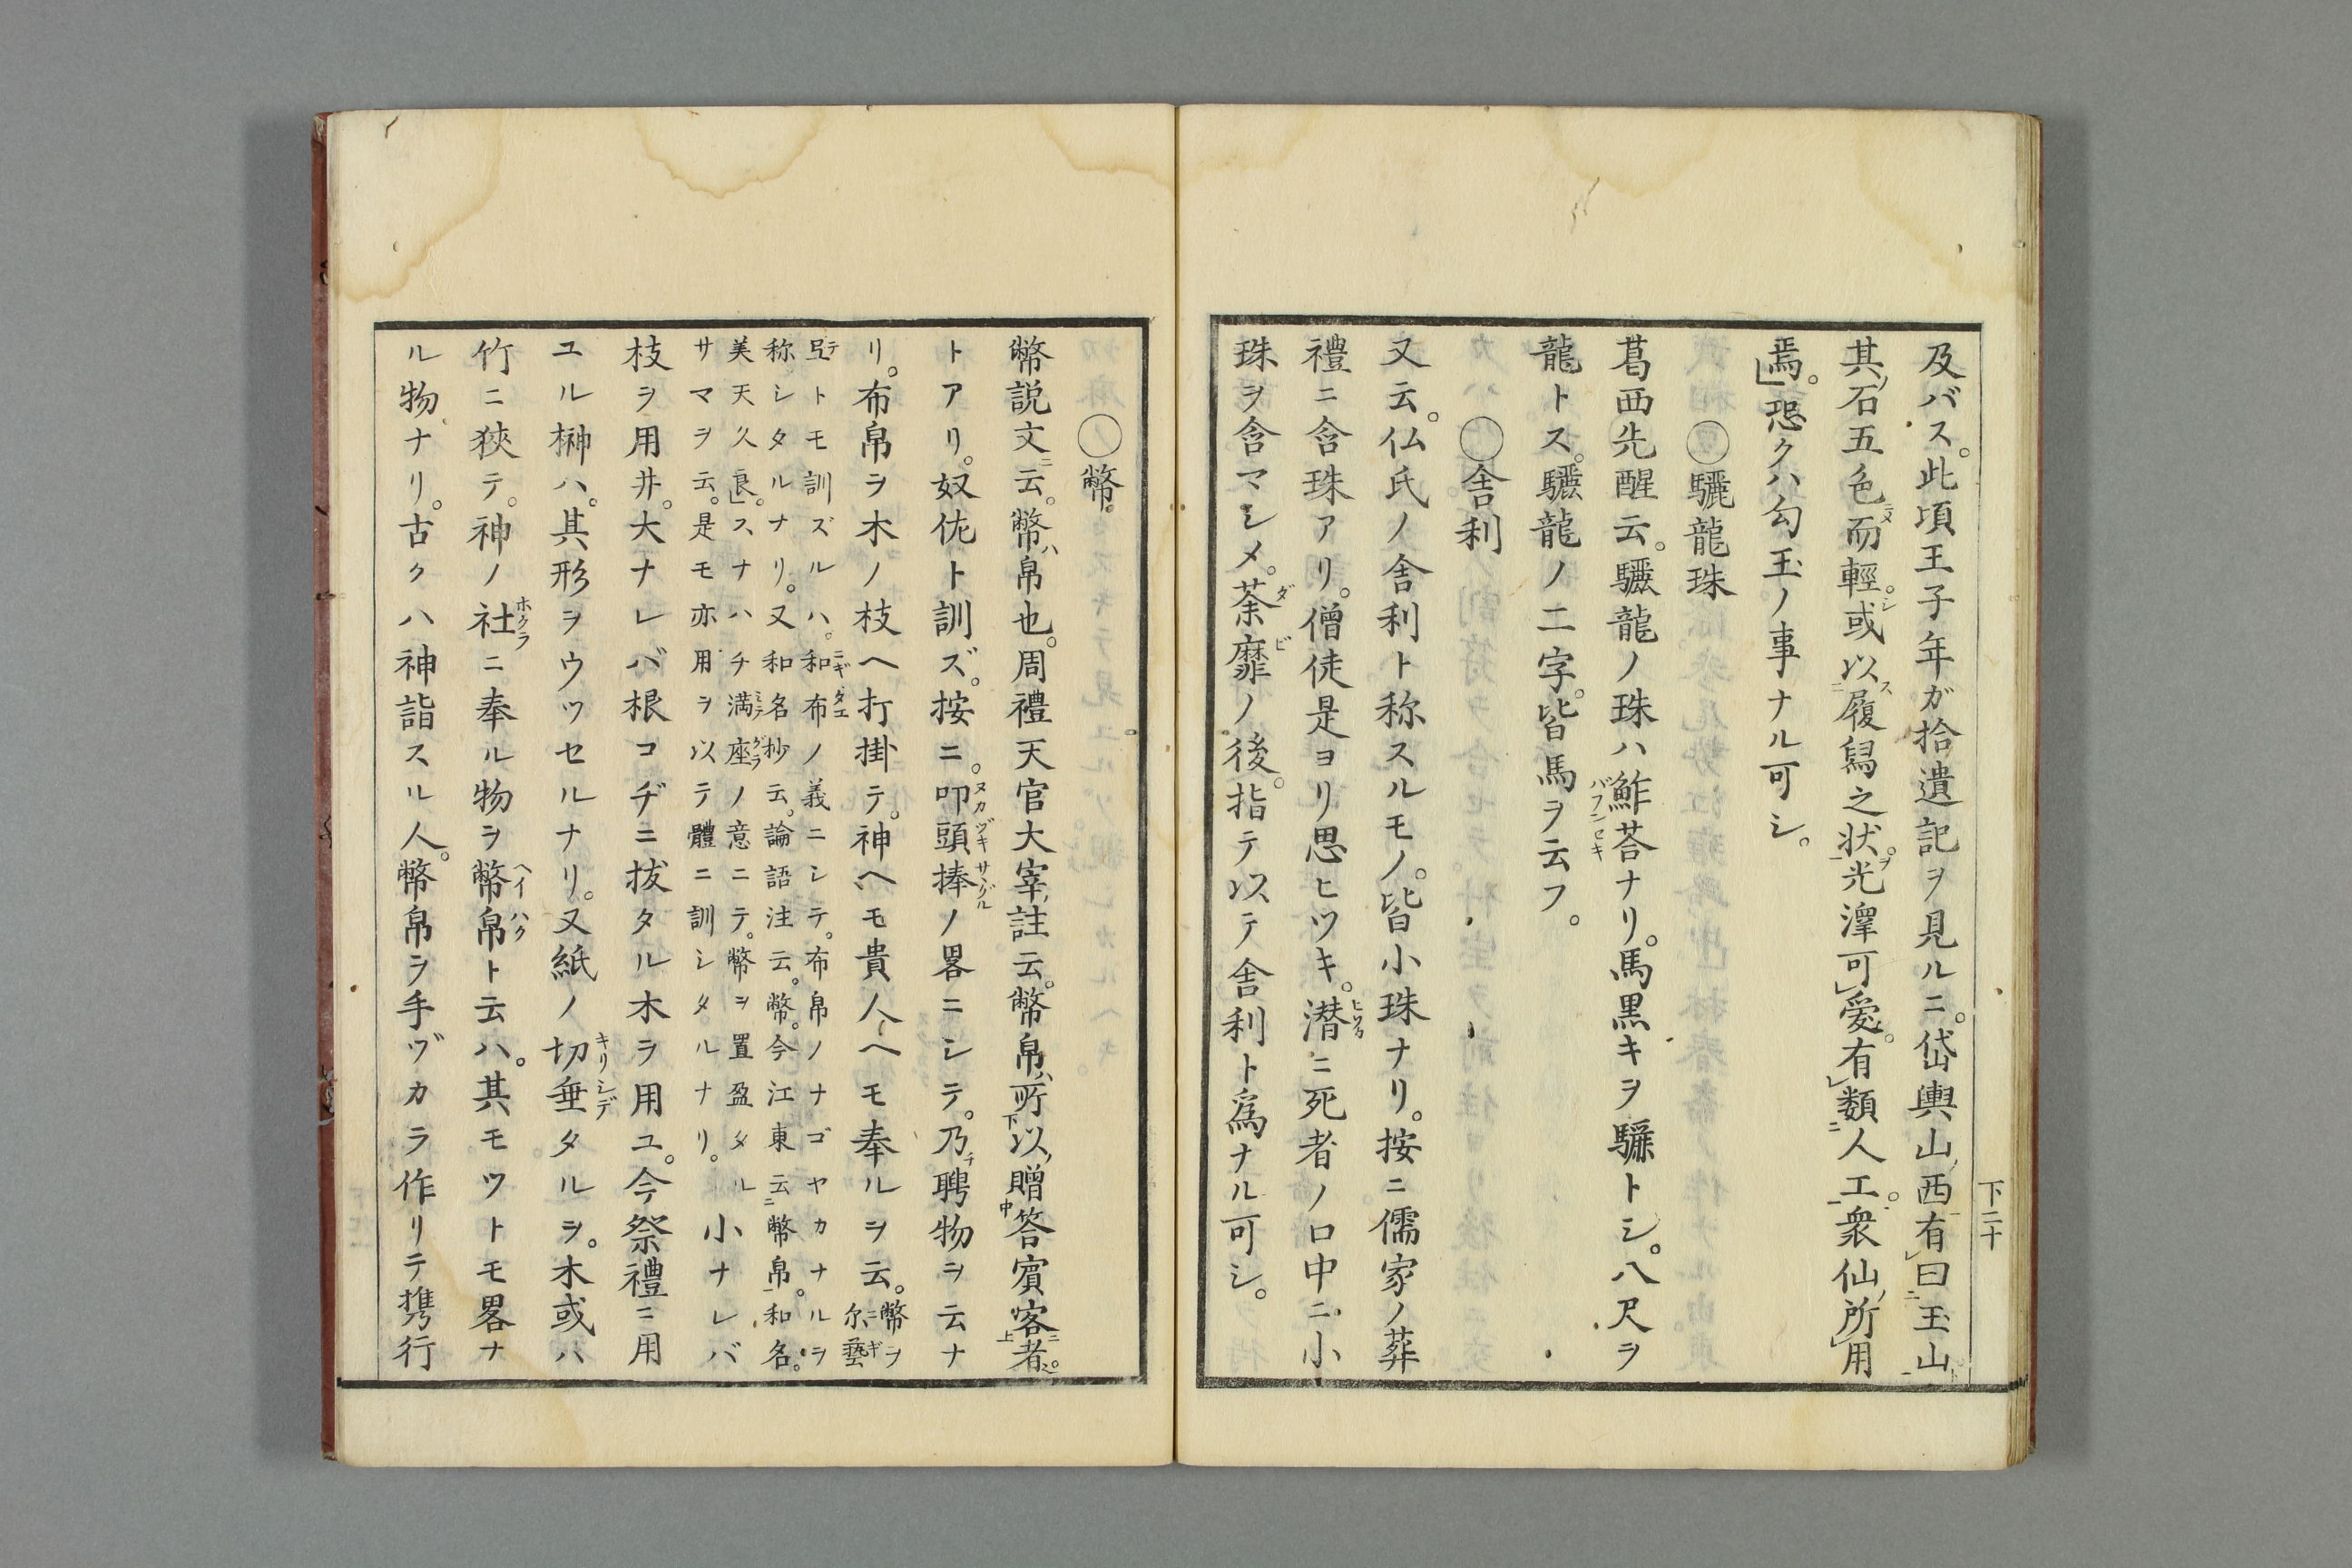 及バス。此項王子年ガ拾遺記ヲ見ルニ。岱輿山西有曰玉山。
其石五色而輕。或以履舄之状。光澤可愛。有類人工。衆仙所用
焉。」恐クハ勾玉ノ事ナル可シ。
〇驪龍珠
葛西先醒云。驪龍ノ珠ハ鮓荅ナリ。馬黒キヲ驪トシ。八尺ヲ
龍トス。驪龍ノ二字。皆馬ヲ云フ。
〇舎利
又云。仏氏ノ舎利ト称スルモノ。皆小珠ナリ。按ニ儒家ノ葬
禮ニ含珠アリ。僧徒是ヨリ思ヒツキ。潜ニ死者ノ口中ニ小
珠ヲ含マシメ。荼靡ノ後。指テ以テ舎利ト為ナル可シ。
下二十
〇幣。
幣説文云。幣ハ帛也。周禮天官大宰註云。幣帛所以贈答賓客者。
トアリ。奴佐ト訓ズ。按ニ。叩頭捧ノ畧ニシテ。乃聘物ヲ云ナ
リ。布帛ヲ木ノ枝ヘ打掛テ。神ヘモ貴人ヘモ奉ルヲ云。幣ヲ
尓藝
弖トモ訓ズルハ。和布ノ義ニシテ。布帛ノナゴヤカナルヲ
称シタルナリ。又和名抄云。論語注云。幣。今江東云幣帛。和名。
美天久良」。スナハチ満座ノ意ニテ。幣ヲ置盈タル
サマヲ云。是モ亦用ヲ以テ體ニ訓シタルナリ。小ナレバ
枝ヲ用井。大ナレバ根コヂニ拔タル木ヲ用ユ。今祭禮ニ用
ユル榊ハ。其形ヲウツセルナリ。又紙ノ切垂タルヲ。木或ハ
竹ニ狹テ。神ノ社ニ奉ル物ヲ幣帛ト云ハ。其モツトモ畧ナ
ル物ナリ。古クハ神詣スル人。幣帛ヲ手ヅカラ作リテ携行